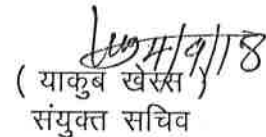 4/9/18
( याकुब खेस्स )
संयुक्त सचिव